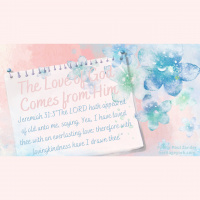 The Love of God
Comes from Him
Jeremiah 31:3 "The LORD hath appeared
of old unto me, saying, Yea, I have loved
thee with an everlasting love: therefore with
lovingkindness have I drawn thee."